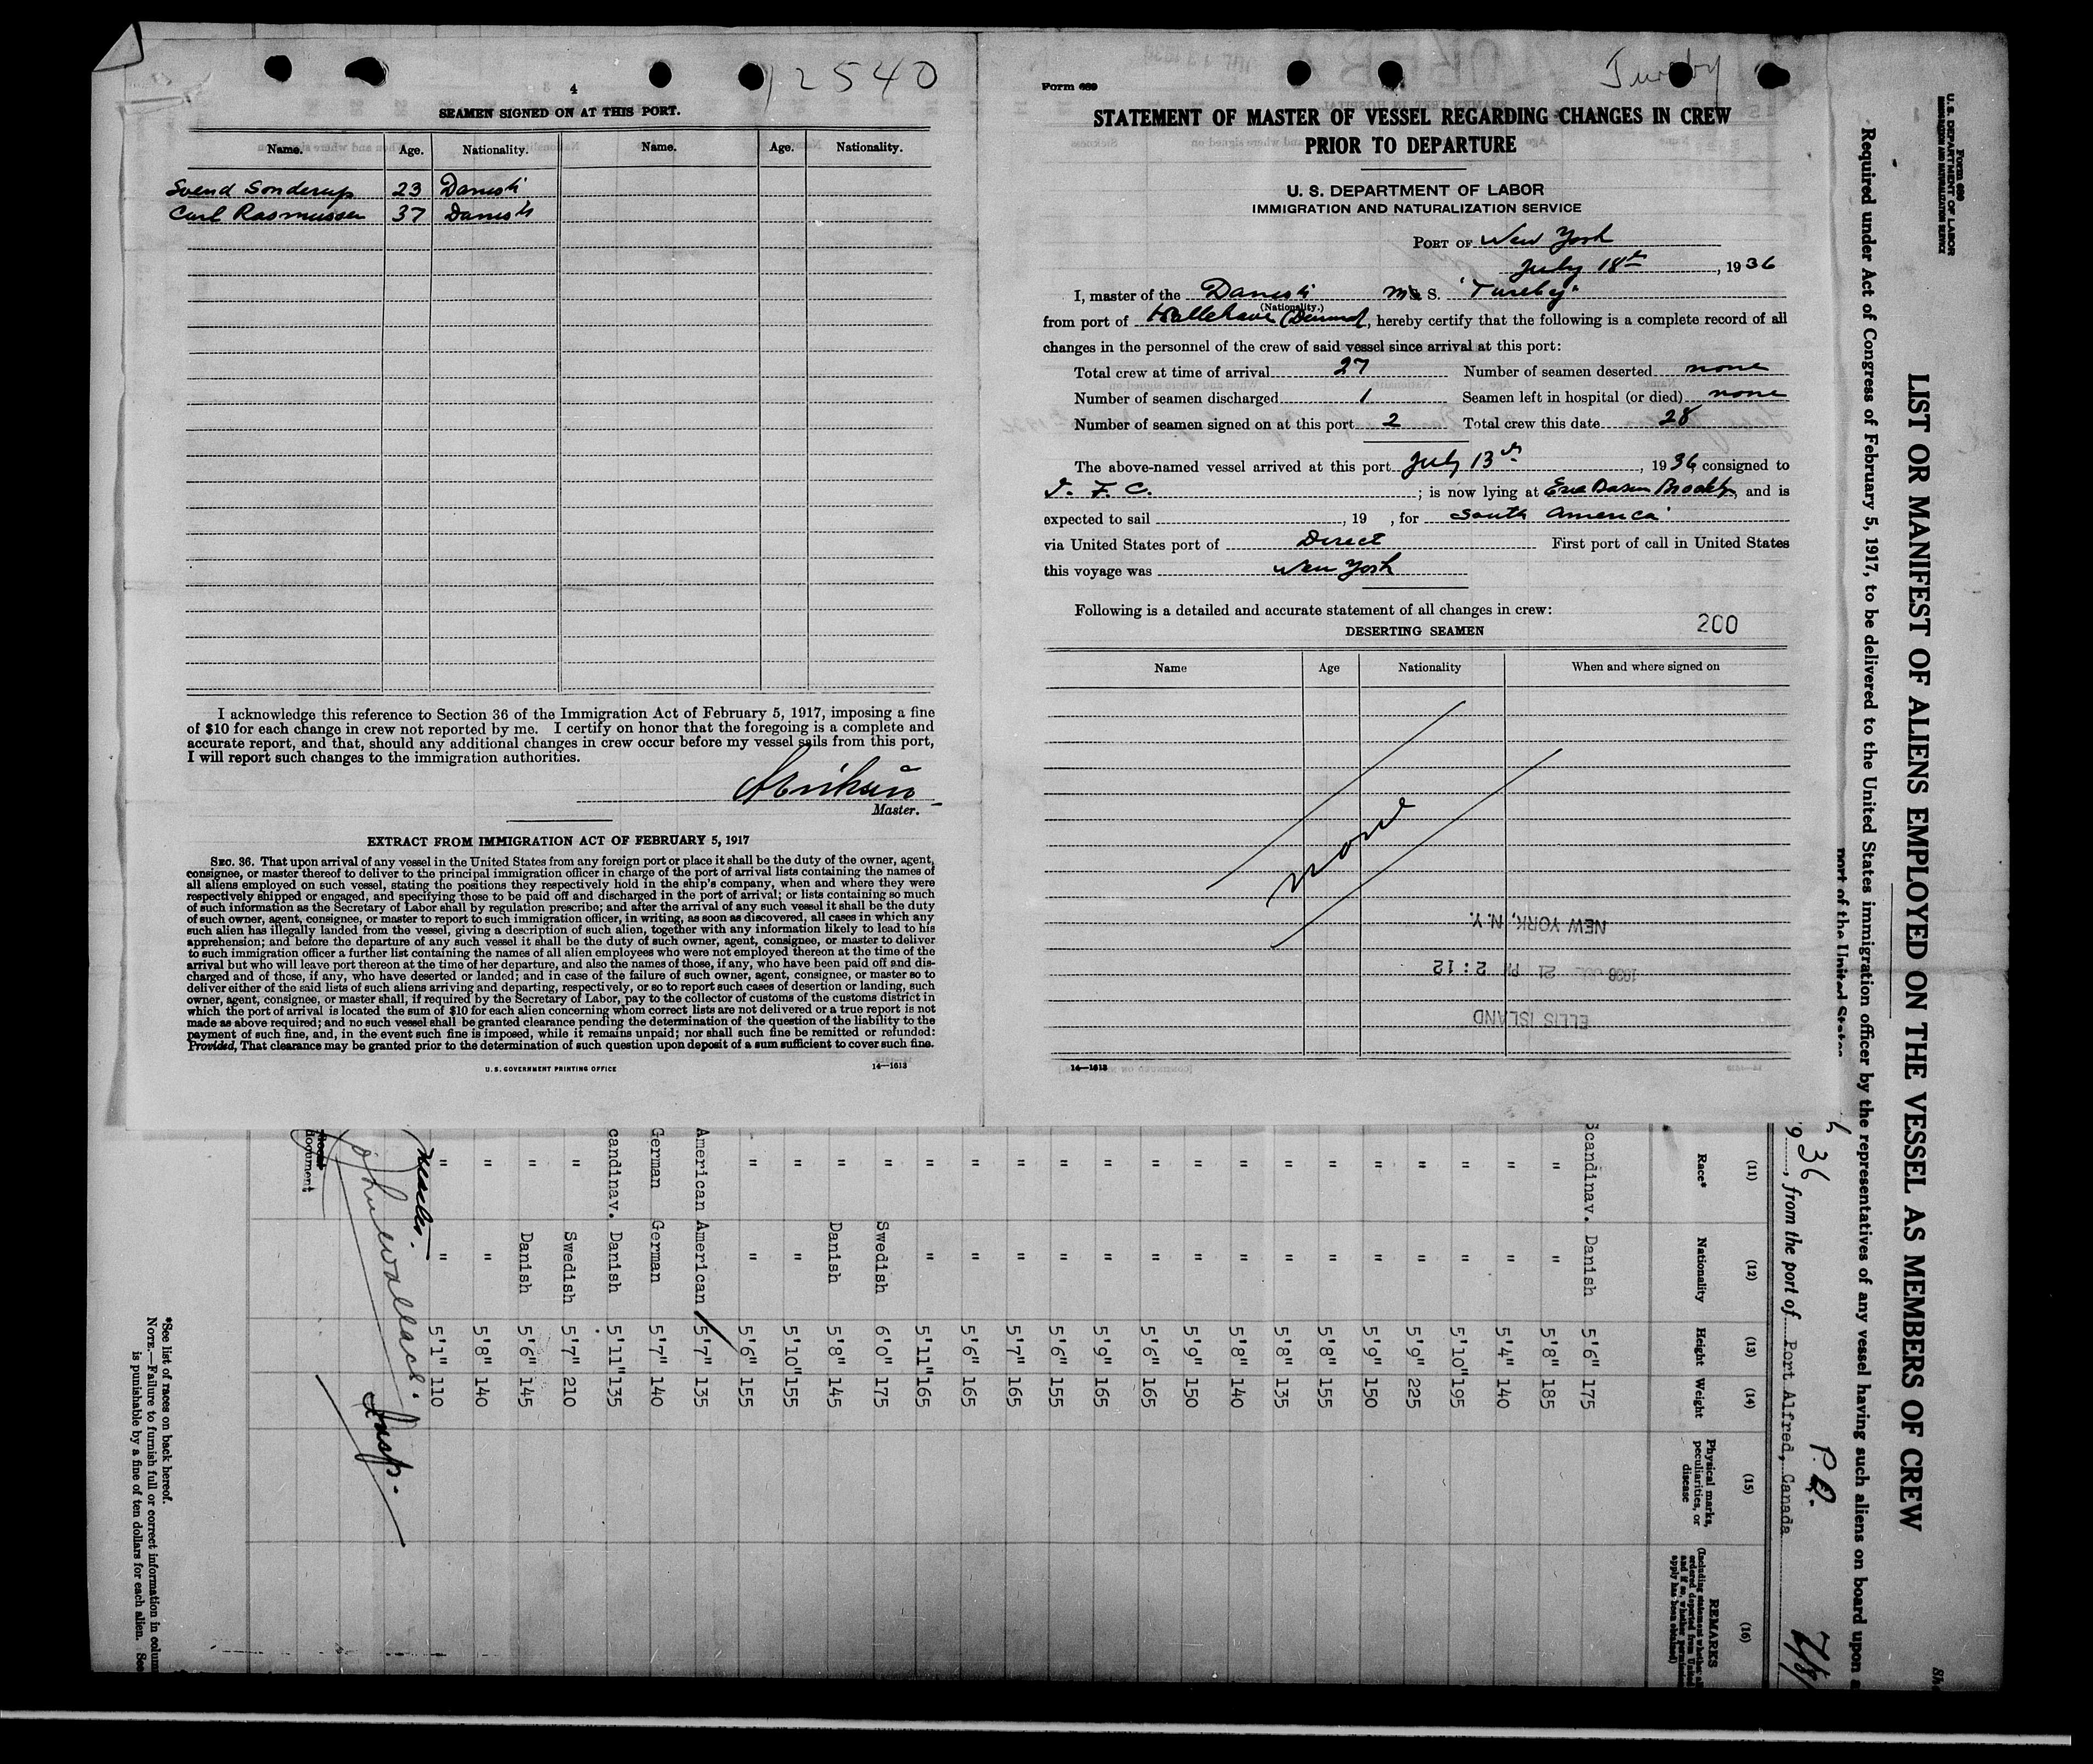 4
12540
SEAMEN SIGNED ON AT THIS PORT.
Name. Age. Nationality. Name. Age. Nationality.
Svend Sonderup 23 Danish
Carl Rasmussen 37 Danish
I acknowledge this reference to Section 36 of the Immigration Act of February 5, 1917, imposing a fine
of $10 for each change in crew not reported by me. I certify on honor that the foregoing is a complete and
accurate report, and that, should any additional changes in crew occur before my vessel sails from this port,
I will report such changes to the immigration authorities.
Master.
EXTRACT FROM IMMIGRATION ACT OF FEBRUARY 5, 1917
SEC. 36. That upon arrival of any vessel in the United States from any foreign port or place it shall be the duty of the owner, agent,
consignee, or master thereof to deliver to the principal immigration officer in charge of the port of arrival lists containing the names of
all aliens employed on such vessel, stating the positions they respectively hold in the ship's company, when and where they were
respectively shipped or engaged, and specifying those to be paid off and discharged in the port of arrival; or lists containing so much
of such information as the Secretary of Labor shall by regulation prescribe; and after the arrival of any such vessel it shall be the duty
of such owner, agent, consignee, or master to report to such immigration officer, in writing, as soon as discovered, all cases in which any
such alien has illegally landed from the vessel, giving a description of such alien, together with any information likely to lead to his
apprehension; and before the departure of any such vessel it shall be the duty of such owner, agent, consignee, or master to deliver
to such immigration officer a further list containing the names of all alien employees who were not employed thereon at the time of the
arrival but who will leave port thereon at the time of her departure, and also the names of those, if any, who have been paid off and dis-
charged and of those, if any, who have deserted or landed; and in case of the failure of such owner, agent, consignee, or master so to
deliver either of the said lists of such aliens arriving and departing, respectively, or so to report such cases of desertion or landing, such
owner, agent, consignee, or master shall, if required by the Secretary of Labor, pay to the collector of customs of the customs district in
which the port of arrival is located the sum of $10 for each alien concerning whom correct lists are not delivered or a true report is not
made as above required; and no such vessel shall be granted clearance pending the determination of the question of the liability to the
payment of such fine, and, in the event such fine is imposed, while it remains unpaid; nor shall such fine be remitted or refunded:
Provided, That clearance may be granted prior to the determination of such question upon deposit of a sum sufficient to cover such fine.
U. S. GOVERNMENT PRINTING OFFICE 14—1613
Form 689
Tureby
STATEMENT OF MASTER OF VESSEL REGARDING CHANGES IN CREW
PRIOR TO DEPARTURE
U. S. DEPARTMENT OF LABOR
IMMIGRATION AND NATURALIZATION SERVICE
PORT OF New York
July 18th, 1936
I, master of the Danish M.S. "Tureby"
(Nationality.)
from port of , hereby certify that the following is a complete record of all
changes in the personnel of the crew of said vessel since arrival at this port:
Total crew at time of arrival 27 Number of seamen deserted none
Number of seamen discharged 1 Seamen left in hospital (or died) none
Number of seamen signed on at this port 2 Total crew this date 28
The above-named vessel arrived at this port July 13th, 1936, consigned to
I. F. C. ; is now lying at Erie Basin Brooklyn, and is
expected to sail , 19 , for South America
via United States port of Direct First port of call in United States
this voyage was New York
Following is a detailed and accurate statement of all changes in crew:
DESERTING SEAMEN
200
Name Age Nationality When and where signed on
none
NEW YORK, N.Y.
1936 JUL 21 PM 2:12
ELLIS ISLAND
14—1613
Form 689
U. S. DEPARTMENT OF LABOR
IMMIGRATION AND NATURALIZATION SERVICE
LIST OR MANIFEST OF ALIENS EMPLOYED ON THE VESSEL AS MEMBERS OF CREW
Required under Act of Congress of February 5, 1917, to be delivered to the United States immigration officer by the representatives of any vessel having such aliens on board upon a
port of the United States
36, from the port of Port Alfred, Canada P.Q.
(11) (12) (13) (14) (15) (16)
Race* Nationality Height Weight Physical marks, peculiarities, or disease REMARKS
Scandinav. Danish 5'6" 175
" " 5'8" 185
" " 5'4" 140
" " 5'10" 195
" " 5'9" 225
" " 5'9" 150
" " 5'8" 155
" " 5'8" 135
" " 5'8" 140
" " 5'9" 150
" " 5'6" 165
" " 5'9" 165
" " 5'6" 155
" " 5'7" 165
" " 5'6" 165
" " 5'11" 165
" Swedish 6'0" 175
" Danish 5'8" 145
" " 5'10" 155
" " 5'6" 155
American American 5'7" 135
German German 5'7" 140
candinav. Danish 5'11" 135
" Swedish 5'7" 210
" Danish 5'6" 145
" " 5'8" 140
" " 5'1" 110
Master.
Insp.
document
*See list of races on back hereof.
NOTE.—Failure to furnish full or correct information in colum
is punishable by a fine of ten dollars for each alien. See